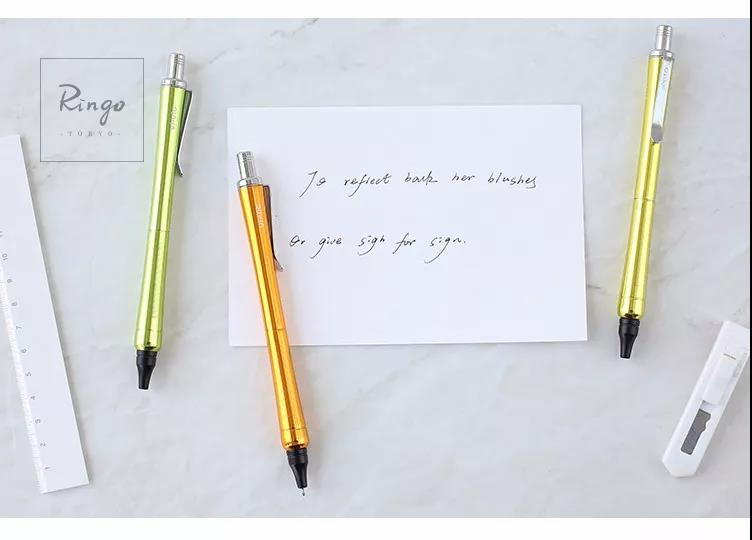 Ringo
-TOKYO-
To reflect back her blushes
Or give sigh for sign.
10
9
8
7
6
5
4
3
2
1